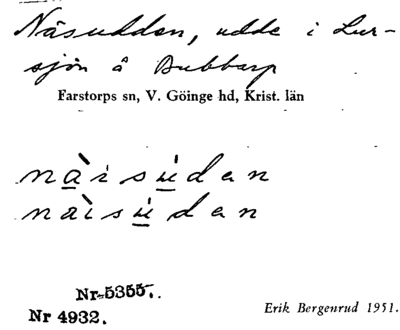 Näsudden, udde i Lur-
sjön å Bubbarp
Farstorps sn, V. Göinge hd, Krist. län
nàisùdan
nàisùdan
Nr 5355.
Nr 4932.
Erik Bergenrud 1951.